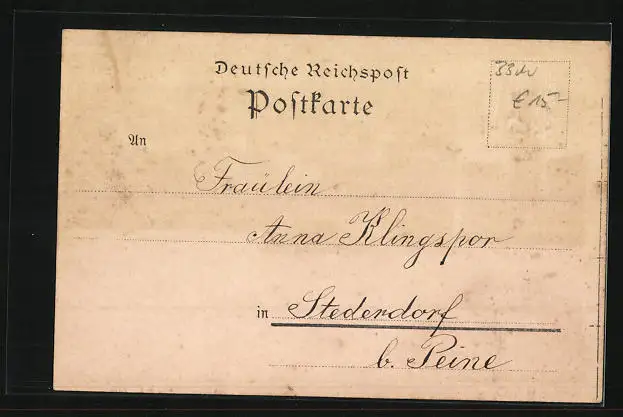 Deutsche Reichspost
Postkarte
€ 15-
An
Fräulein
Anna Klingspor
in Stederdorf
b. Peine